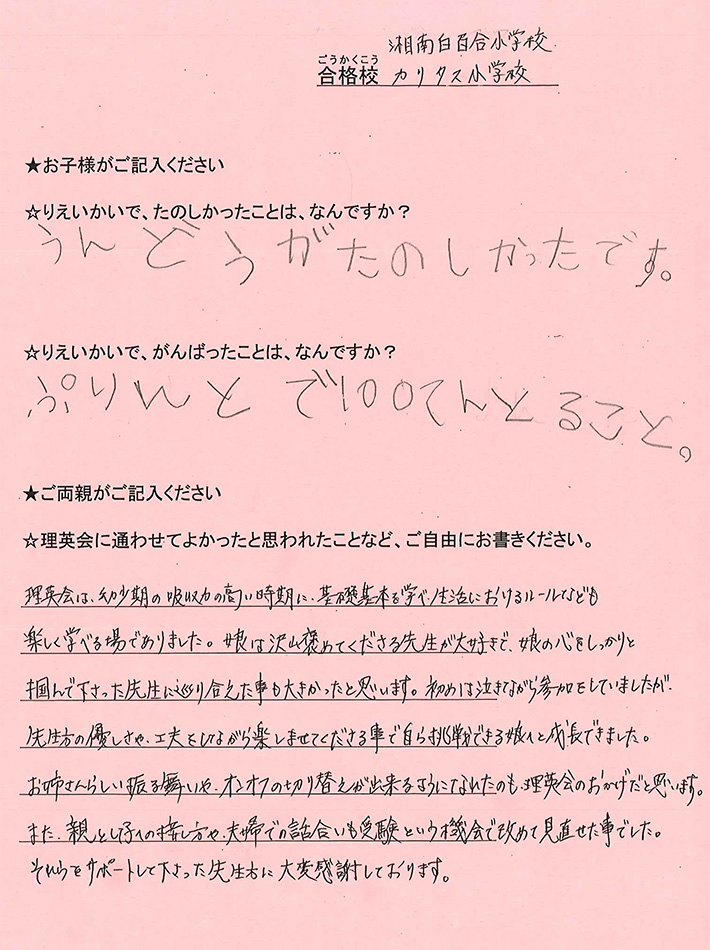 湘南白百合小学校
ごうかくこう
合格校 カリタス小学校
★お子様がご記入ください
☆りえいかいで、たのしかったことは、なんですか？
うんどうがたのしかったです。
☆りえいかいで、がんばったことは、なんですか？
ぷりんとで100てんとること。
★ご両親がご記入ください
☆理英会に通わせてよかったと思われたことなど、ご自由にお書きください。
理英会は、幼少期の吸収力の高い時期に、基礎基本を学べ、生活におけるルールなども
楽しく学べる場でありました。娘は沢山褒めてくださる先生が大好きで、娘の心をしっかりと
掴んで下さった先生に巡り合えた事も大きかったと思います。初めは泣きながら参加をしていましたが、
先生方の優しさや、工夫をしながら楽しませてくださる事で自ら挑戦できる娘へと成長できました。
お姉さんらしい振る舞いや、オンオフの切り替えが出来るようになれたのも、理英会のおかげだと思います。
また、親として子への接し方や、夫婦での話合いも受験という機会で改めて見直せた事でした。
それらをサポートして下さった先生方に大変感謝しております。